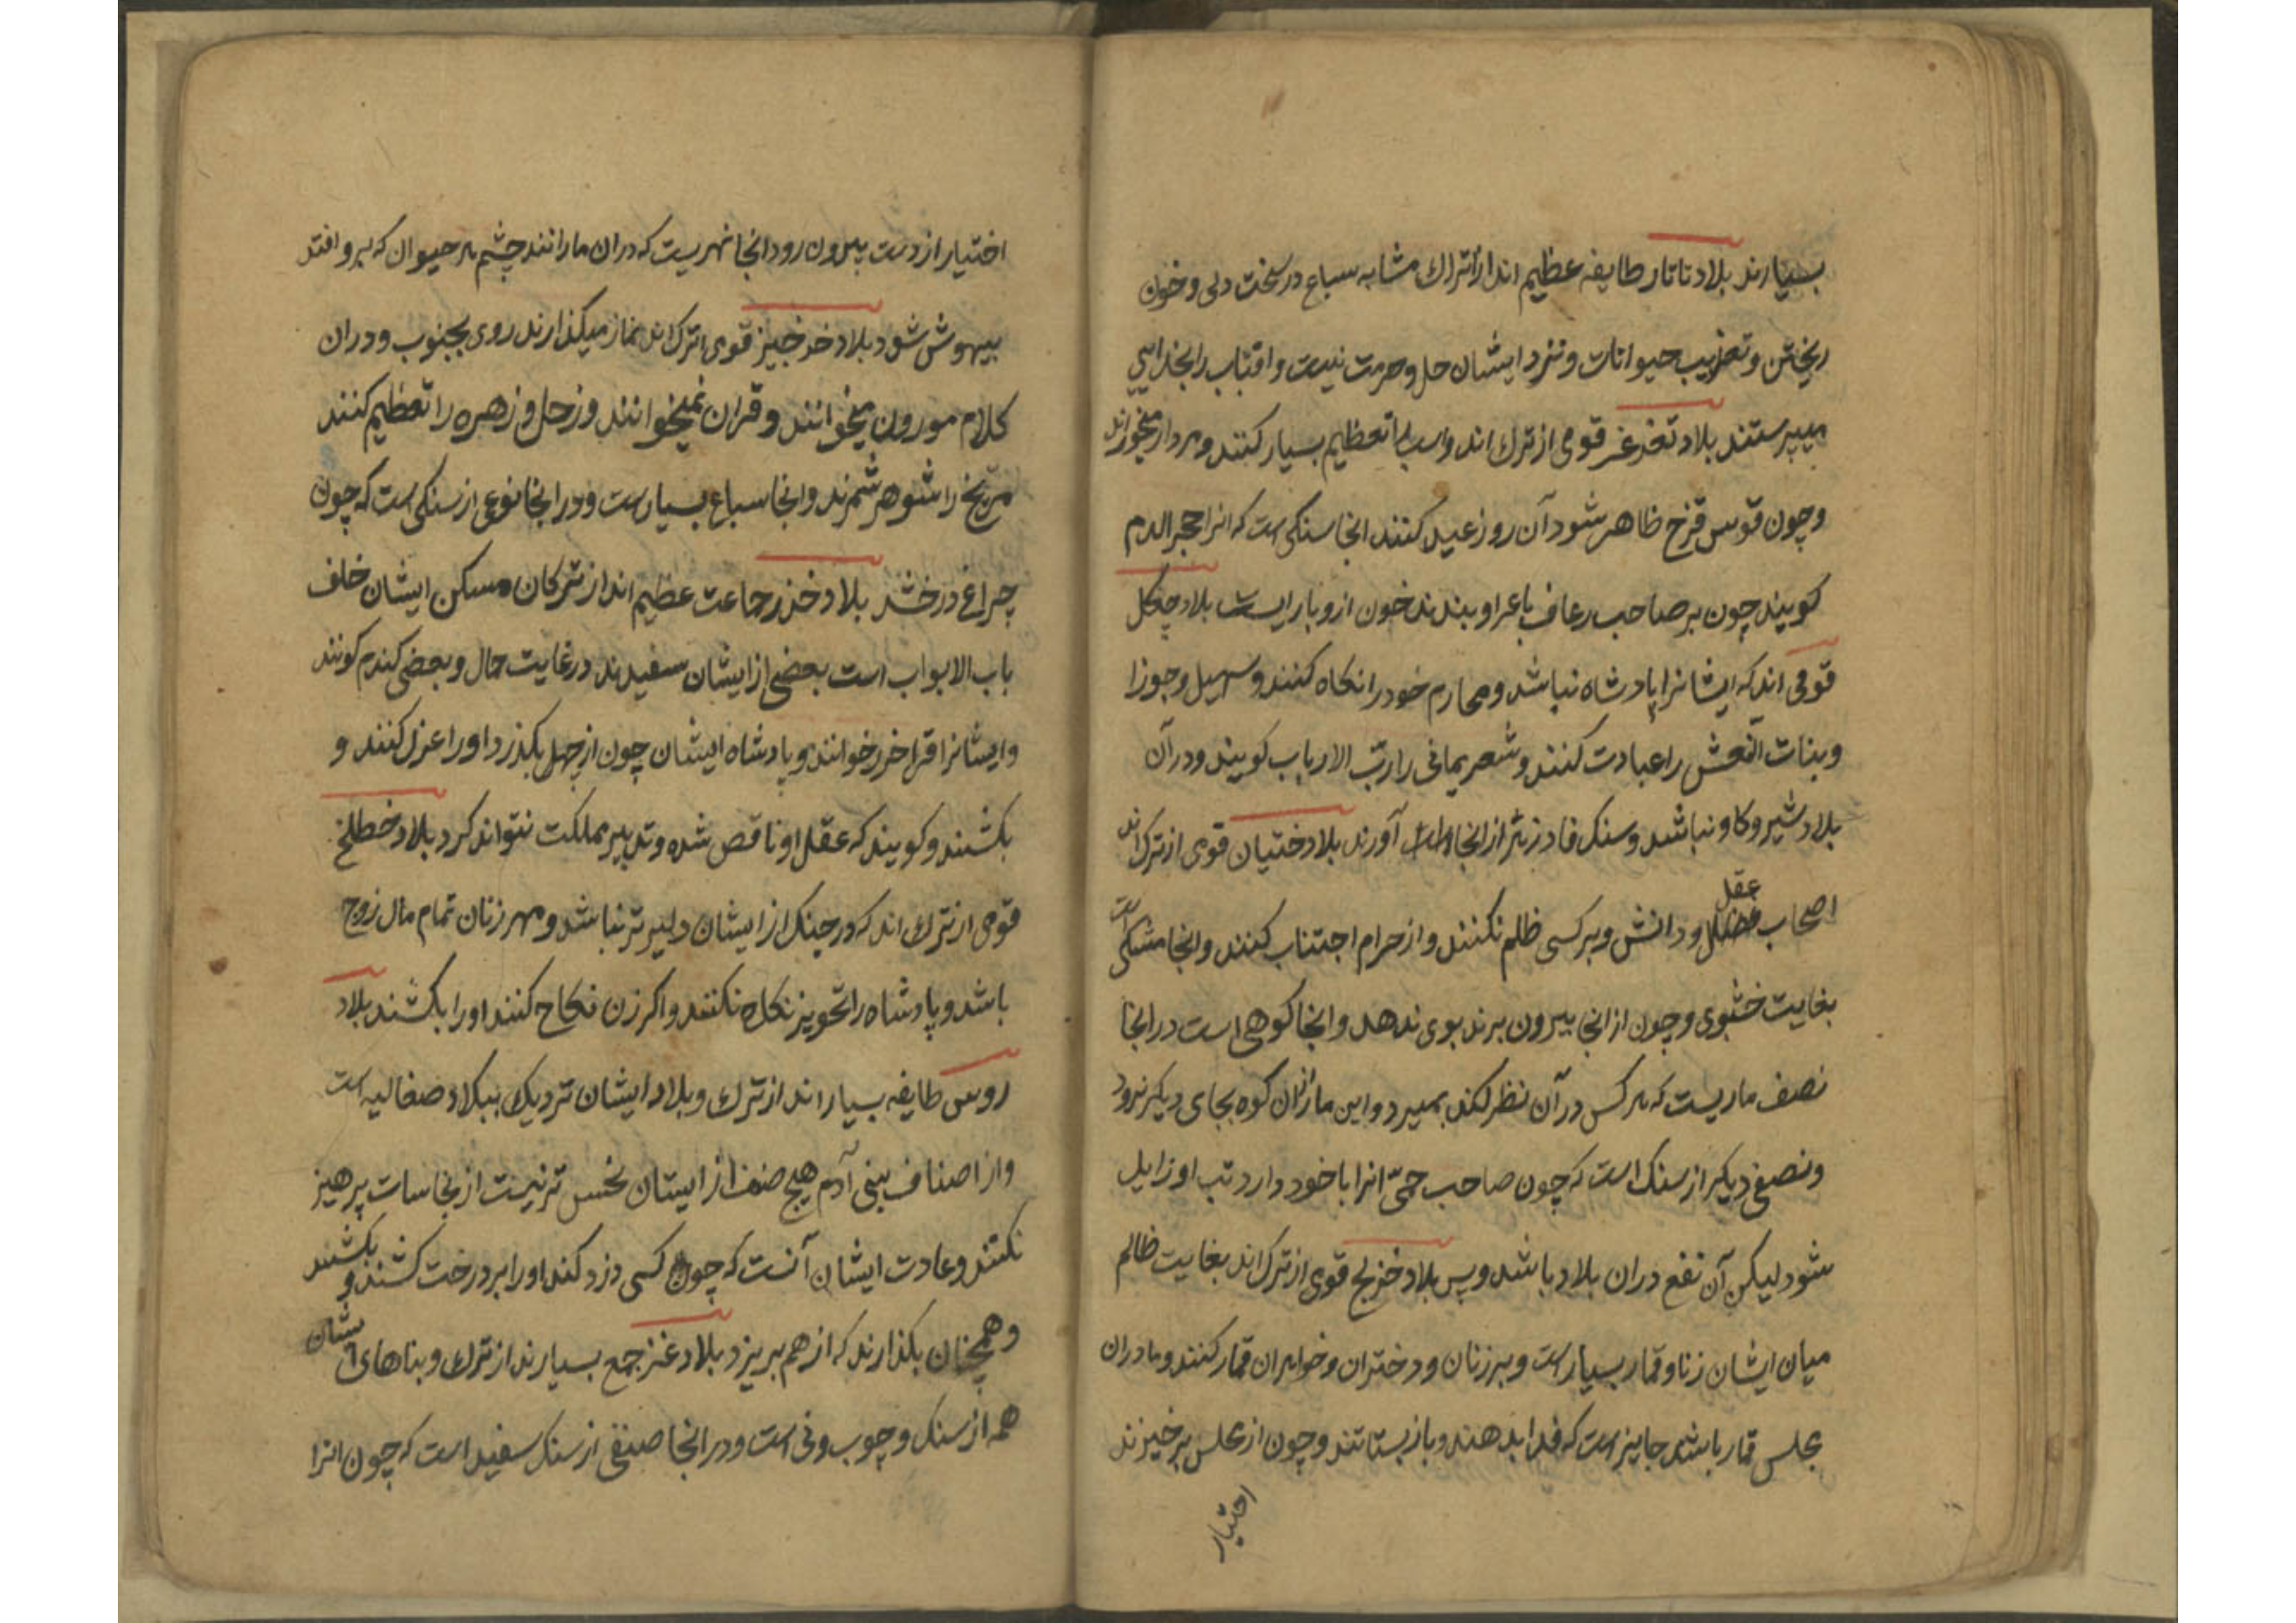 بسیارند بلاد تاتار طایفه عظیم اند از اتراك مشابه سباع در سخت دلی و خون
ریختن و تعذیب حیوانات و نزد ایشان حل و حرمت نیست و افتاب را بخدایی
میپرستند بلاد تغزغز قومی از ترك اند واسب را تعظیم بسیار کنند و مردار میخورند
و چون قوس قزح ظاهر شود آن روز عید کنند انجا سنکی است که انرا حجر الدم
کویند چون بر صاحب رعاف یا غیر او بندند خون ازو باز ایستد بلاد چکل
قومی اند که ایشانرا پادشاه نباشد و محارم خود را نکاه کنند و سهیل و جوزا
و بنات النعش را عبادت کنند و شعر یمانی را رب الارباب کویند و در آن
بلاد شیر و کاو نباشد و سنک فادزهر از انجا آورند بلاد ختیان قومی از ترك اند
اصحاب عقل و دانش و بر کسی ظلم نکنند و از حرام اجتناب کنند و انجا مشکی است
بغایت خشبوی و چون از انجا بیرون برند بوی ندهد و انجا کوهی است در انجا
نصف ماریست که هر کس در آن نظر کند بمیرد و این مار ازان کوه بجای دیکر نرود
و نصفی دیکر از سنک است که چون صاحب حمّی انرا با خود دارد تب او زایل
شود لیکن آن نفع دران بلاد باشد و پس بلاد خزلج قومی از ترك اند بغایت ظالم
میان ایشان زنا و قمار بسیار است و بر زنان و دختران و خواهران قمار کنند و مادران
مجلس قمار باشد جایز است که فدا بدهند و باز بستانند و چون از مجلس برخیزند
اختیار
اختیار از دست بیرون رود انجا نهریست که دران مارانند چشم هر حیوان که برو افتد
بیهوش شود بلاد خرخیز قومی از ترك اند نماز میکذارند روی بجنوب و دران
کلام موزون میخوانند و قران نمیخوانند و زحل و زهره را تعظیم کنند
مریخ را شوهر شمرند و انجا سباع بسیارست و در انجا نوعی از سنکی است که چون
چراغ درخشد بلاد خزر جماعت عظیم اند از ترکان مسکن ایشان خلف
باب الابواب است بعضی از ایشان سفیدند در غایت جمال و بعضی کندم کونند
و ایشانرا قرا خزر خوانند و پادشاه ایشان چون از چهل بکذرد اورا عزل کنند و
بکشند و کویند که عقل او ناقص شده و تدبیر مملکت نتواند کرد بلاد خطلخ
قومی از ترك اند که در جنک از ایشان دلیر تر نباشد و مهر زنان تمام مال زوج
باشد و پادشاه را تجویز نکاح نکنند و اکر زن نکاح کنند اورا بکشند بلاد
روس طایفه بسیار اند از ترك و بلاد ایشان نزدیک ببلاد صقالیه است
و از اصناف بنی آدم هیچ صنف از ایشان نجس تر نیست از نجاسات پرهیز
نکنند و عادت ایشان آنست که چون کسی دزد کند اورا بر درخت کشند و بکشند
و همچنان بکذارند که از هم بریزد بلاد غز جمع بسیارند از ترك و بناهای ایشان
همه از سنک و چوب ونی است و در انجا صنفی از سنک سفید است که چون انرا